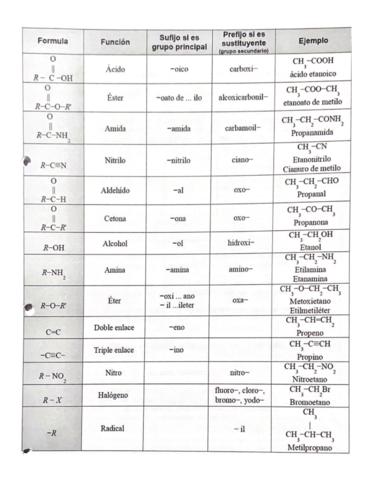 Formula Función Sufijo si es grupo principal Prefijo si es sustituyente (grupo secundario) Ejemplo
O
||
R – C –OH Ácido –oico carboxi– CH3–COOH
ácido etanoico
O
||
R–C–O–R' Éster –oato de ... ilo alcoxicarbonil– CH3–COO–CH3
etanoato de metilo
O
||
R–C–NH2 Amida –amida carbamoil– CH3–CH2–CONH2
Propanamida
R–C≡N Nitrilo –nitrilo ciano– CH3–CN
Etanonitrilo
Cianuro de metilo
O
||
R–C–H Aldehído –al oxo– CH3–CH2–CHO
Propanal
O
||
R–C–R' Cetona –ona oxo– CH3–CO–CH3
Propanona
R–OH Alcohol –ol hidroxi– CH3–CH2OH
Etanol
R–NH2 Amina –amina amino– CH3–CH2–NH2
Etilamina
Etanamina
R–O–R' Éter –oxi ... ano
– il ...ileter oxa– CH3–O–CH2–CH3
Metoxietano
Etilmetiléter
C=C Doble enlace –eno CH3–CH=CH2
Propeno
–C≡C– Triple enlace –ino CH3–C≡CH
Propino
R – NO2 Nitro nitro– CH3–CH2–NO2
Nitroetano
R – X Halógeno fluoro–, cloro–, bromo–, yodo– CH3–CH2Br
Bromoetano
–R Radical – il CH3
|
CH3–CH–CH3
Metilpropano